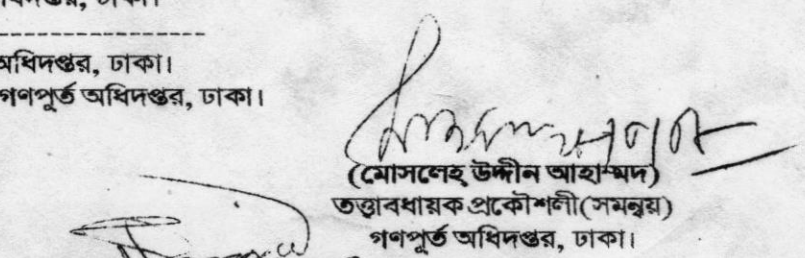 ঢাকা।
অধিদপ্তর, ঢাকা।
গণপূর্ত অধিদপ্তর, ঢাকা।
(মোসলেহ্ উদ্দীন আহাম্মদ)
তত্ত্বাবধায়ক প্রকৌশলী(সমন্বয়)
গণপূর্ত অধিদপ্তর, ঢাকা।